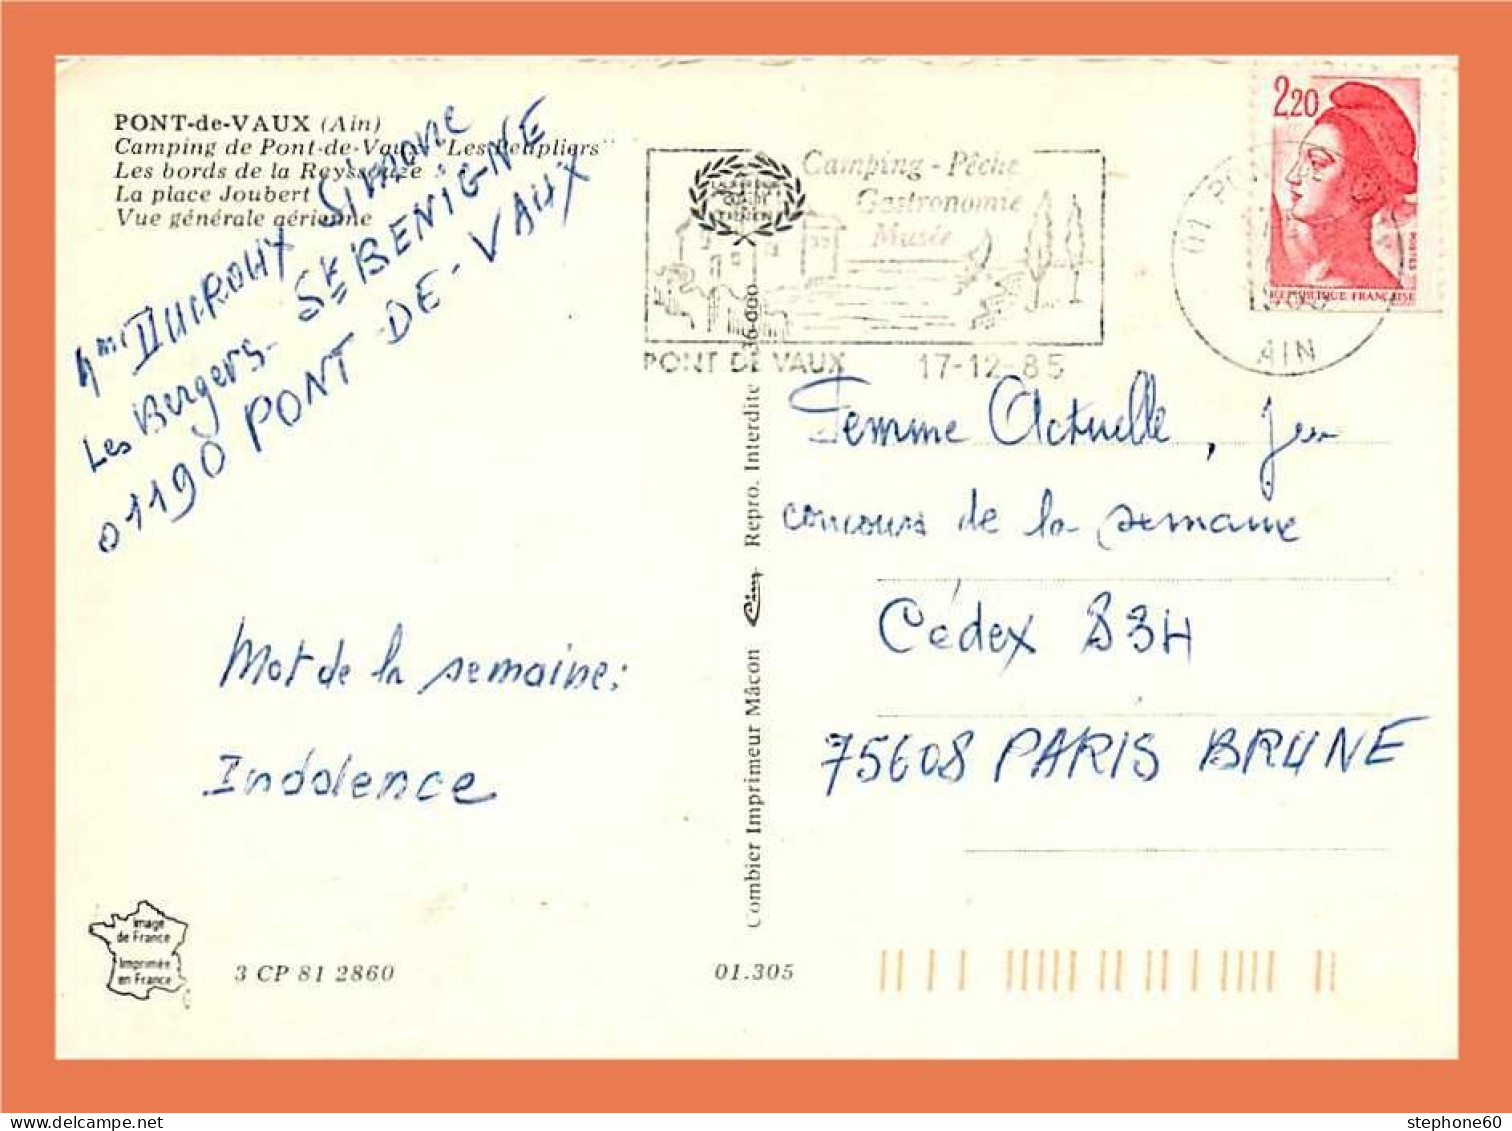 PONT-de-VAUX (Ain)
Camping de Pont-de-Vaux "Les Peupliers"
Les bords de la Reyssouze
La place Joubert
Vue générale aérienne
Simone
Les Bergers - St BENIGNE
01190 PONT-DE-VAUX
Mot de la semaine:
Indolence
Image
de France
Imprimée
en France
3 CP 81 2860
01.305
Combier Imprimeur Mâcon Repro. Interdite 36-000
Camping - Pêche
Gastronomie
Musée
PONT DE VAUX 17-12-85
2,20
POSTES
REPUBLIQUE FRANÇAISE
01
AIN
Femme Actuelle, Jeu
concours de la semaine
Cédex 834
75608 PARIS BRUNE
stephone60